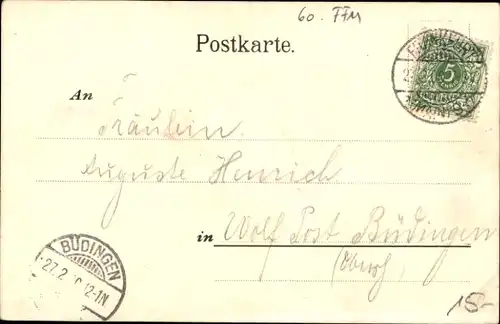 60. FFM
Postkarte.
5
An
Fräulein
Auguste Henrich
in Wolf Post Büdingen
BÜDINGEN
27.2. 12-1N
15-